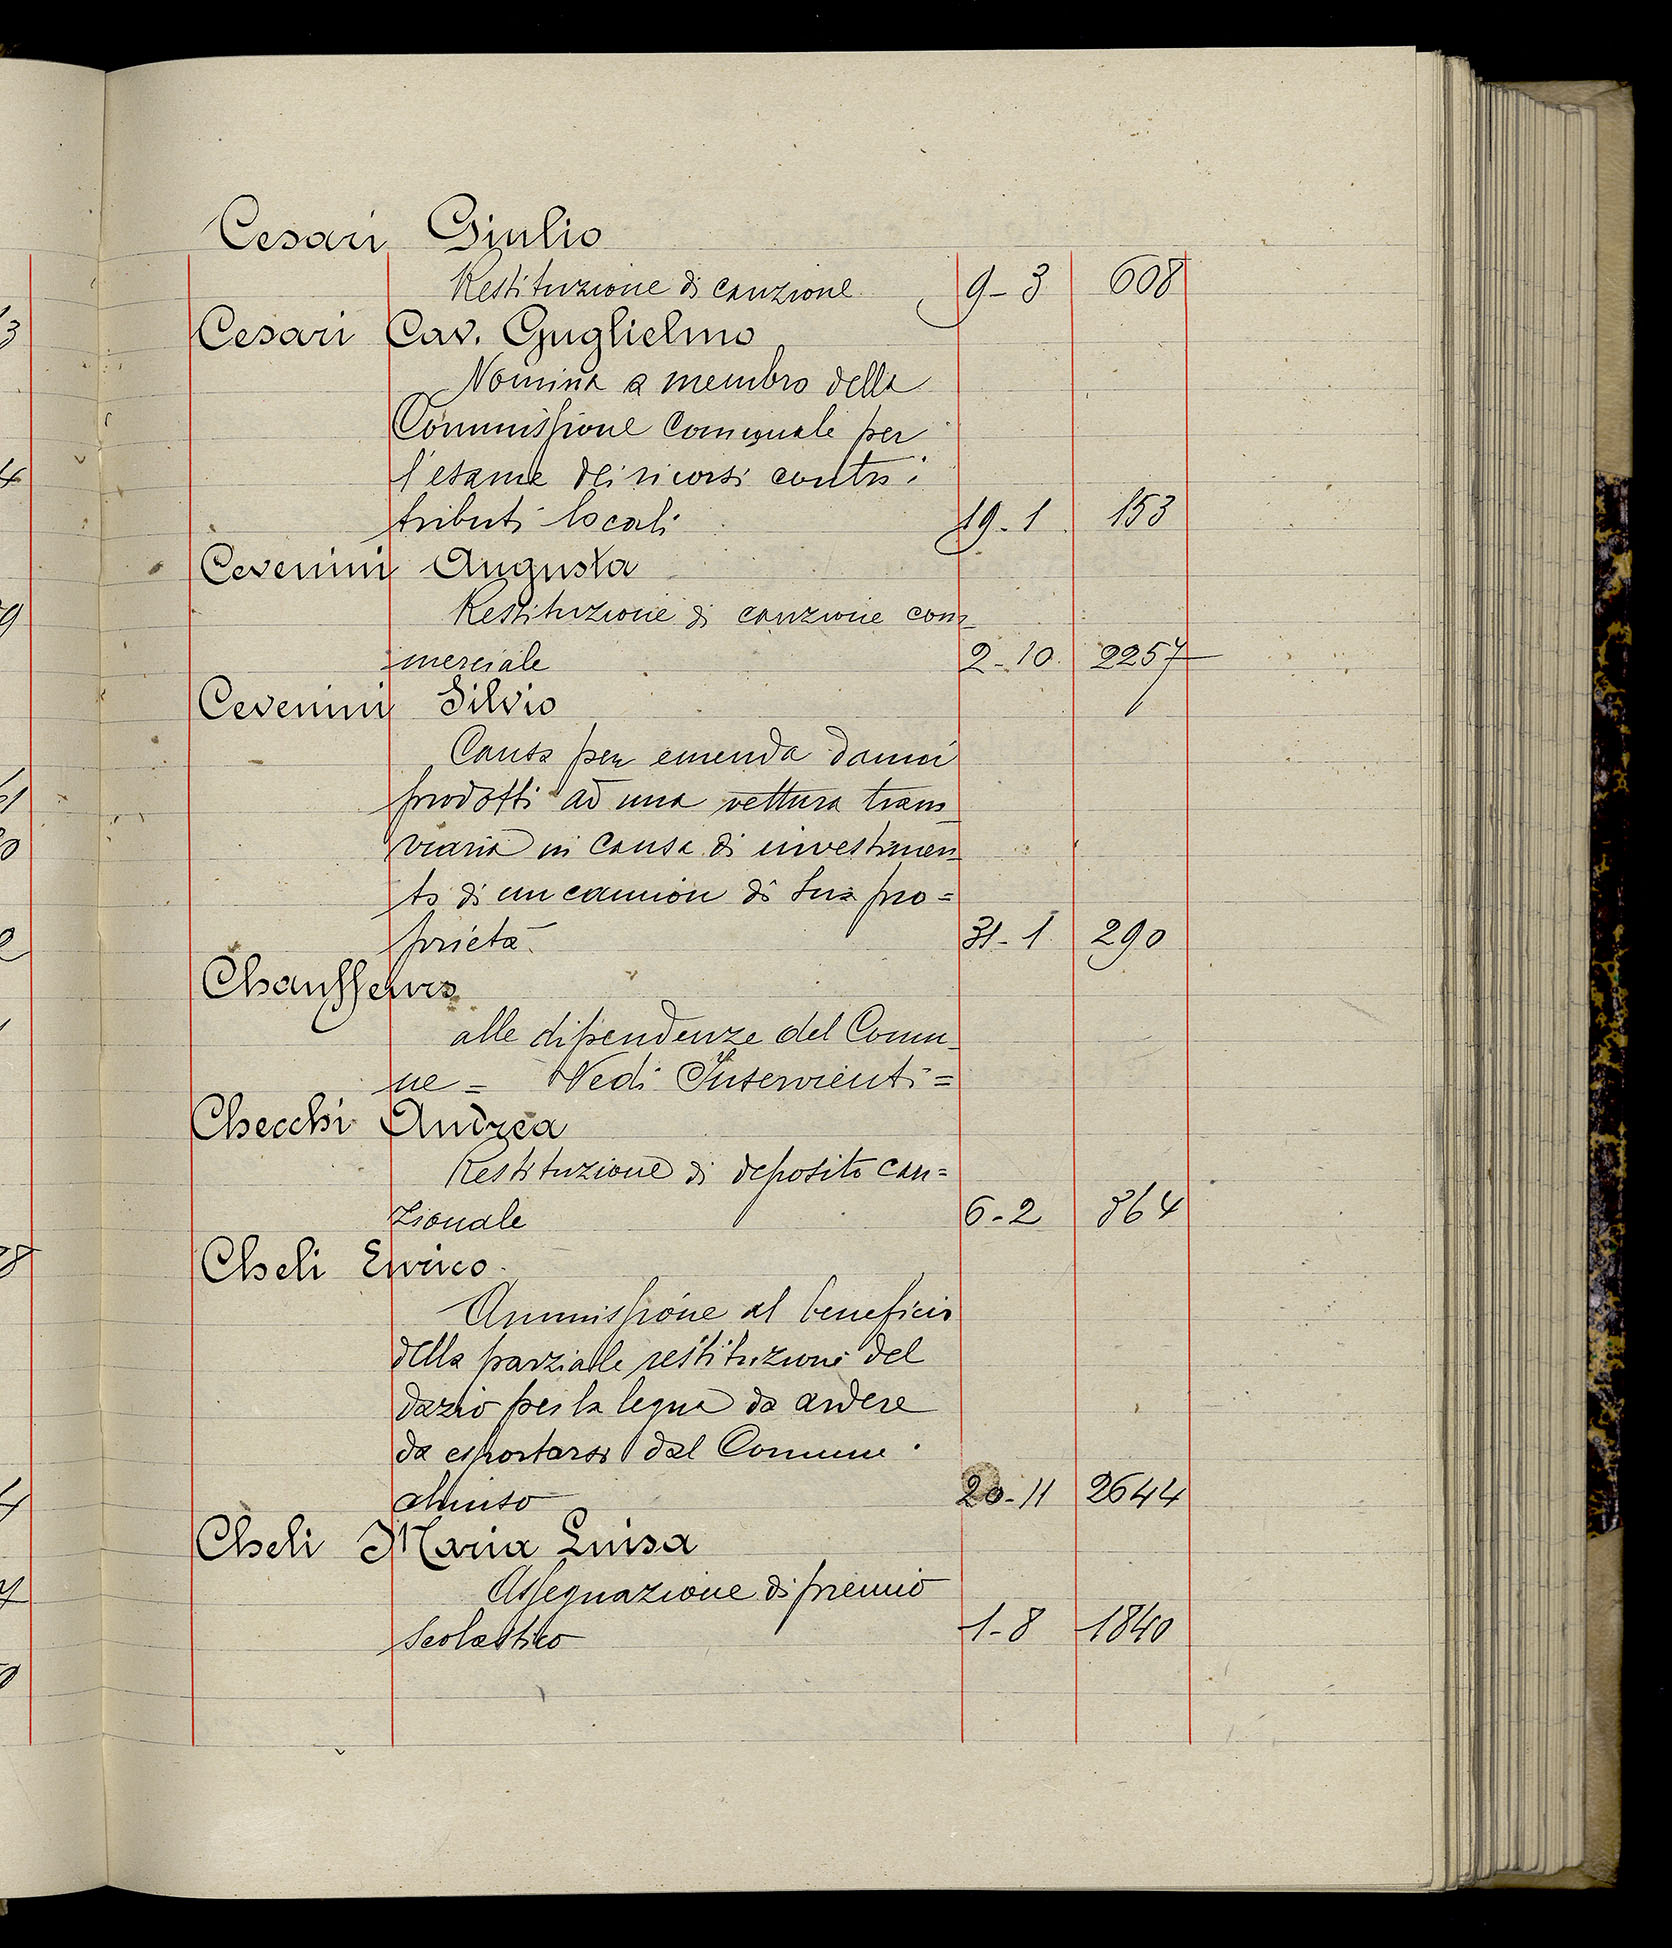 Cesari Giulio
Restituzione di cauzione 9-3 608
Cesari Cav. Guglielmo
Nomina a membro della
Commissione Comunale per
l'esame dei ricorsi contro i
tributi locali 19-1 153
Cevenini Augusta
Restituzione di cauzione com-
merciale 2-10 2257
Cevenini Silvio
Causa per emenda danni
prodotti ad una vettura tram-
viaria in causa di investimen-
to di un camion di sua pro=
prietà 31-1 290
Chauffeurs
alle dipendenze del Comu-
ne = Vedi Inservienti =
Checchi Andrea
Restituzione di deposito cau=
zionale 6-2 364
Cheli Enrico
Ammissione al beneficio
della parziale restituzione del
dazio per la legna da ardere
da esportarsi dal Comune
chiuso 20-11 2644
Cheli Maria Luisa
Assegnazione di premio
scolastico 1-8 1840